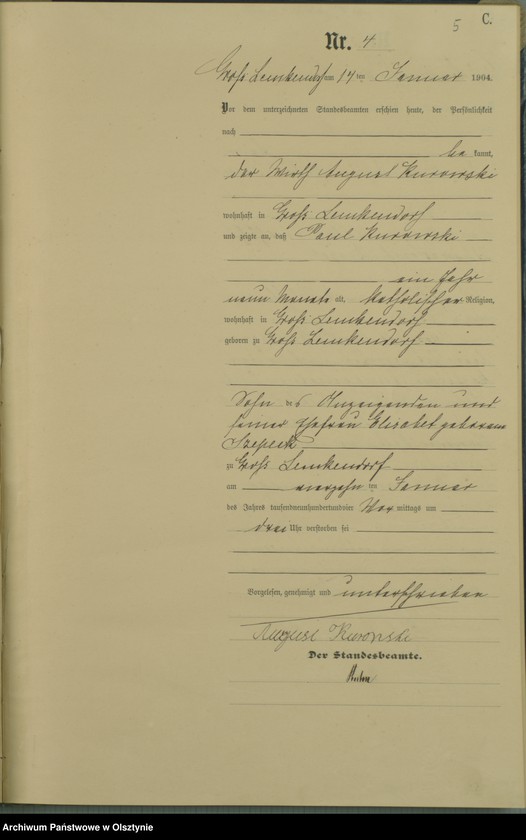 5 C.
Nr. 4
Groß Lemkendorf am 14 ten Januar 1904.
Vor dem unterzeichneten Standesbeamten erschien heute, der Persönlichkeit
nach
be kannt,
der Wirth August Kurowski
wohnhaft in Groß Lemkendorf
und zeigte an, daß Paul Kurowski
ein Jahr
neun Monate alt, katholischer Religion,
wohnhaft in Groß Lemkendorf
geboren zu Groß Lemkendorf
Sohn des Anzeigenden und
seiner Ehefrau Elisabet geborenen
zu Groß Lemkendorf
am vierzehn ten Januar
des Jahres tausendneunhundertundvier Vor mittags um
drei Uhr verstorben sei
Vorgelesen, genehmigt und unterschrieben
August Kurowski
Der Standesbeamte.
Archiwum Państwowe w Olsztynie